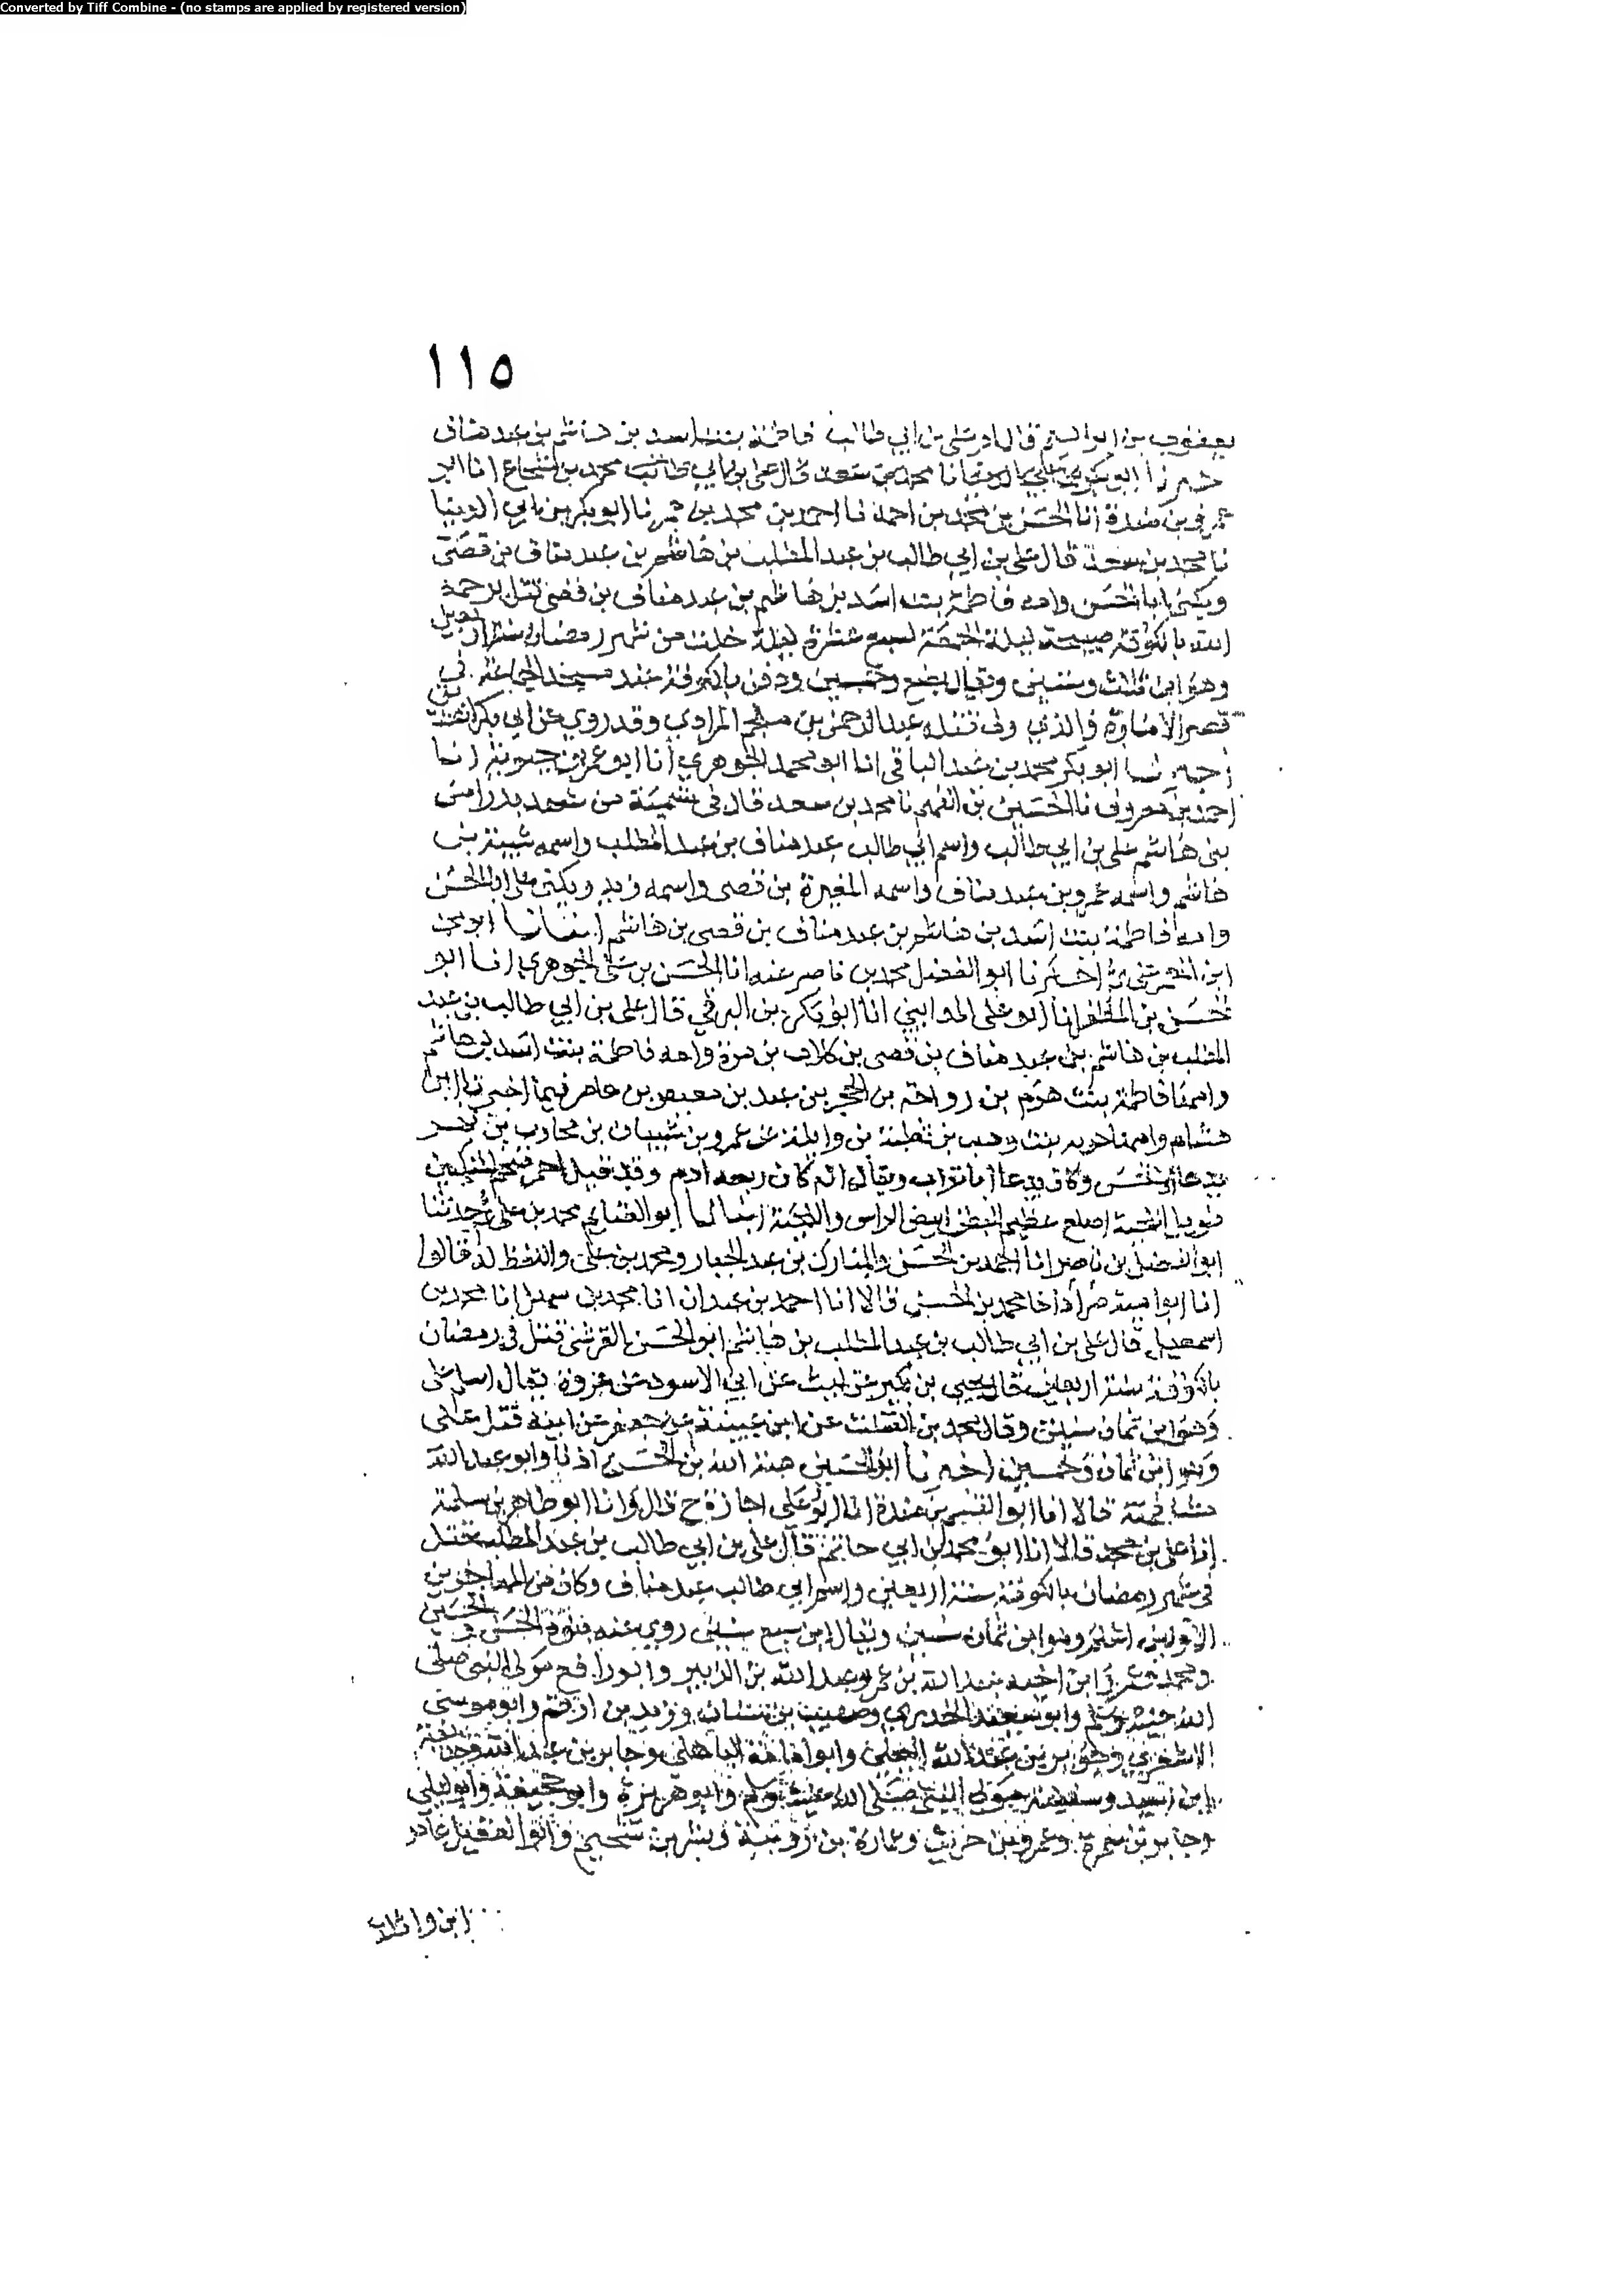 Converted by Tiff Combine - (no stamps are applied by registered version)
١١٥
يعقوب بن ابراهيم قال ام علي بن ابي طالب فاطمة بنت اسد بن هاشم بن عبد مناف
ابو بكر محمد بن شجاع انا ابو
عمرو بن مندة انا الحسن بن محمد بن احمد نا احمد بن محمد بن عمر نا ابو بكر بن ابي الدنيا
نا محمد بن سعد قال علي بن ابي طالب بن عبد المطلب بن هاشم بن عبد مناف بن قصي
ويكنى ابا الحسن وامه فاطمة بنت اسد بن هاشم بن عبد مناف بن قصي قتل يرحمه
الله بالكوفة صبيحة ليلة الجمعة لسبع عشرة ليلة خلت من شهر رمضان سنة اربعين
وهو ابن ثلاث وستين ويقال بضع وخمسين ودفن بالكوفة عند مسجد الجماعة في
قصر الامارة والذي ولى قتله عبد الرحمن بن ملجم المرادي وقد روي عن ابي بكر
اخبرنا ابو بكر محمد بن عبد الباقي انا ابو محمد الجوهري انا ابو عمر بن حيوية انا
احمد بن معروف نا الحسين بن الفهم نا محمد بن سعد قال في تسمية من شهد بدرا من
بني هاشم علي بن ابي طالب واسم ابي طالب عبد مناف بن عبد المطلب واسمه شيبة بن
هاشم واسمه عمرو بن عبد مناف واسمه المغيرة بن قصي واسمه زيد ويكنى علي ابا الحسن
وامه فاطمة بنت اسد بن هاشم بن عبد مناف بن قصي بن هاشم انبانا ابو محمد
ابن اخبرنا ابو الفضل محمد بن ناصر عنه انا الحسن بن علي الجوهري انا ابو
الحسين بن المظفر انا ابو علي المدايني انا ابو بكر بن البرقي قال علي بن ابي طالب بن عبد
المطلب بن هاشم بن عبد مناف بن قصي بن كلاب بن مرة وامه فاطمة بنت اسد بن هاشم
وامها فاطمة بنت هرم بن رواحة بن الحجر بن عبد بن معيص بن عامر فيما اخبرنا ابن
هشام وامها حديه بنت وهب بن ثعلبة بن وايلة بن عمرو بن شيبان بن محارب بن فهر
وكان يدعا ابا تراب ويقال انه كان ربعه ادم وقد قيل احمر ضخم المنكبين
طويل اللحية اصلع عظيم البطن ابيض الراس واللحية انبانا ابو الغنايم محمد بن علي ثم حدثنا
ابو الفضل بن ناصر انا احمد بن الحسن والمبارك بن عبد الجبار ومحمد بن علي واللفظ له قالوا
انا ابو احمد زاد احمد ومحمد بن الحسن قالا انا احمد بن عبدان انا محمد بن سهل انا محمد بن
اسمعيل قال علي بن ابي طالب بن عبد المطلب بن هاشم ابو الحسن القرشي قتل في رمضان
بالكوفة سنة اربعين قال يحيى بن بكير عن ليث عن ابي الاسود عن عروة يقال اسلم علي
وهو ابن ثمان سنين وقال محمد بن الصلت عن ابن عيينة عن جعفر عن ابيه قتل علي
وهو ابن ثمان وخمسين اخبرنا ابو الحسين هبة الله بن الحسن اذنا وابو عبد الله
قالا انا ابو القسم بن مندة انا ابو علي اجازة ح قال وانا ابو طاهر بن سلمة
انا علي بن محمد قالا انا ابو محمد بن ابي حاتم قال علي بن ابي طالب بن عبد المطلب قتل
في شهر رمضان بالكوفة سنة اربعين واسم ابي طالب عبد مناف وكان من المهاجرين
الاولين اسلم وهو ابن ثمان سنين ويقال ابن سبع سنين روى عنه الحسن والحسين
ومحمد بن عمر ابن اخيه عبد الله بن عمر وعبد الله بن الزبير وابو رافع مولى النبي صلى
الله عليه وسلم وابو سعيد الخدري وصهيب بن سنان وزيد بن ارقم وابو موسى
الاشعري وجرير بن عبد الله البجلي وابو امامة الباهلي وجابر بن عبد الله وحذيفة
ابن اسيد وسفينة مولى النبي صلى الله عليه وسلم وابو هريرة وابو جحيفة وابو ليلى
وجابر بن سمرة وعمرو بن حريث وعمارة بن رويبة وبشر بن سحيم وابو الطفيل عامر
ابن واثلة